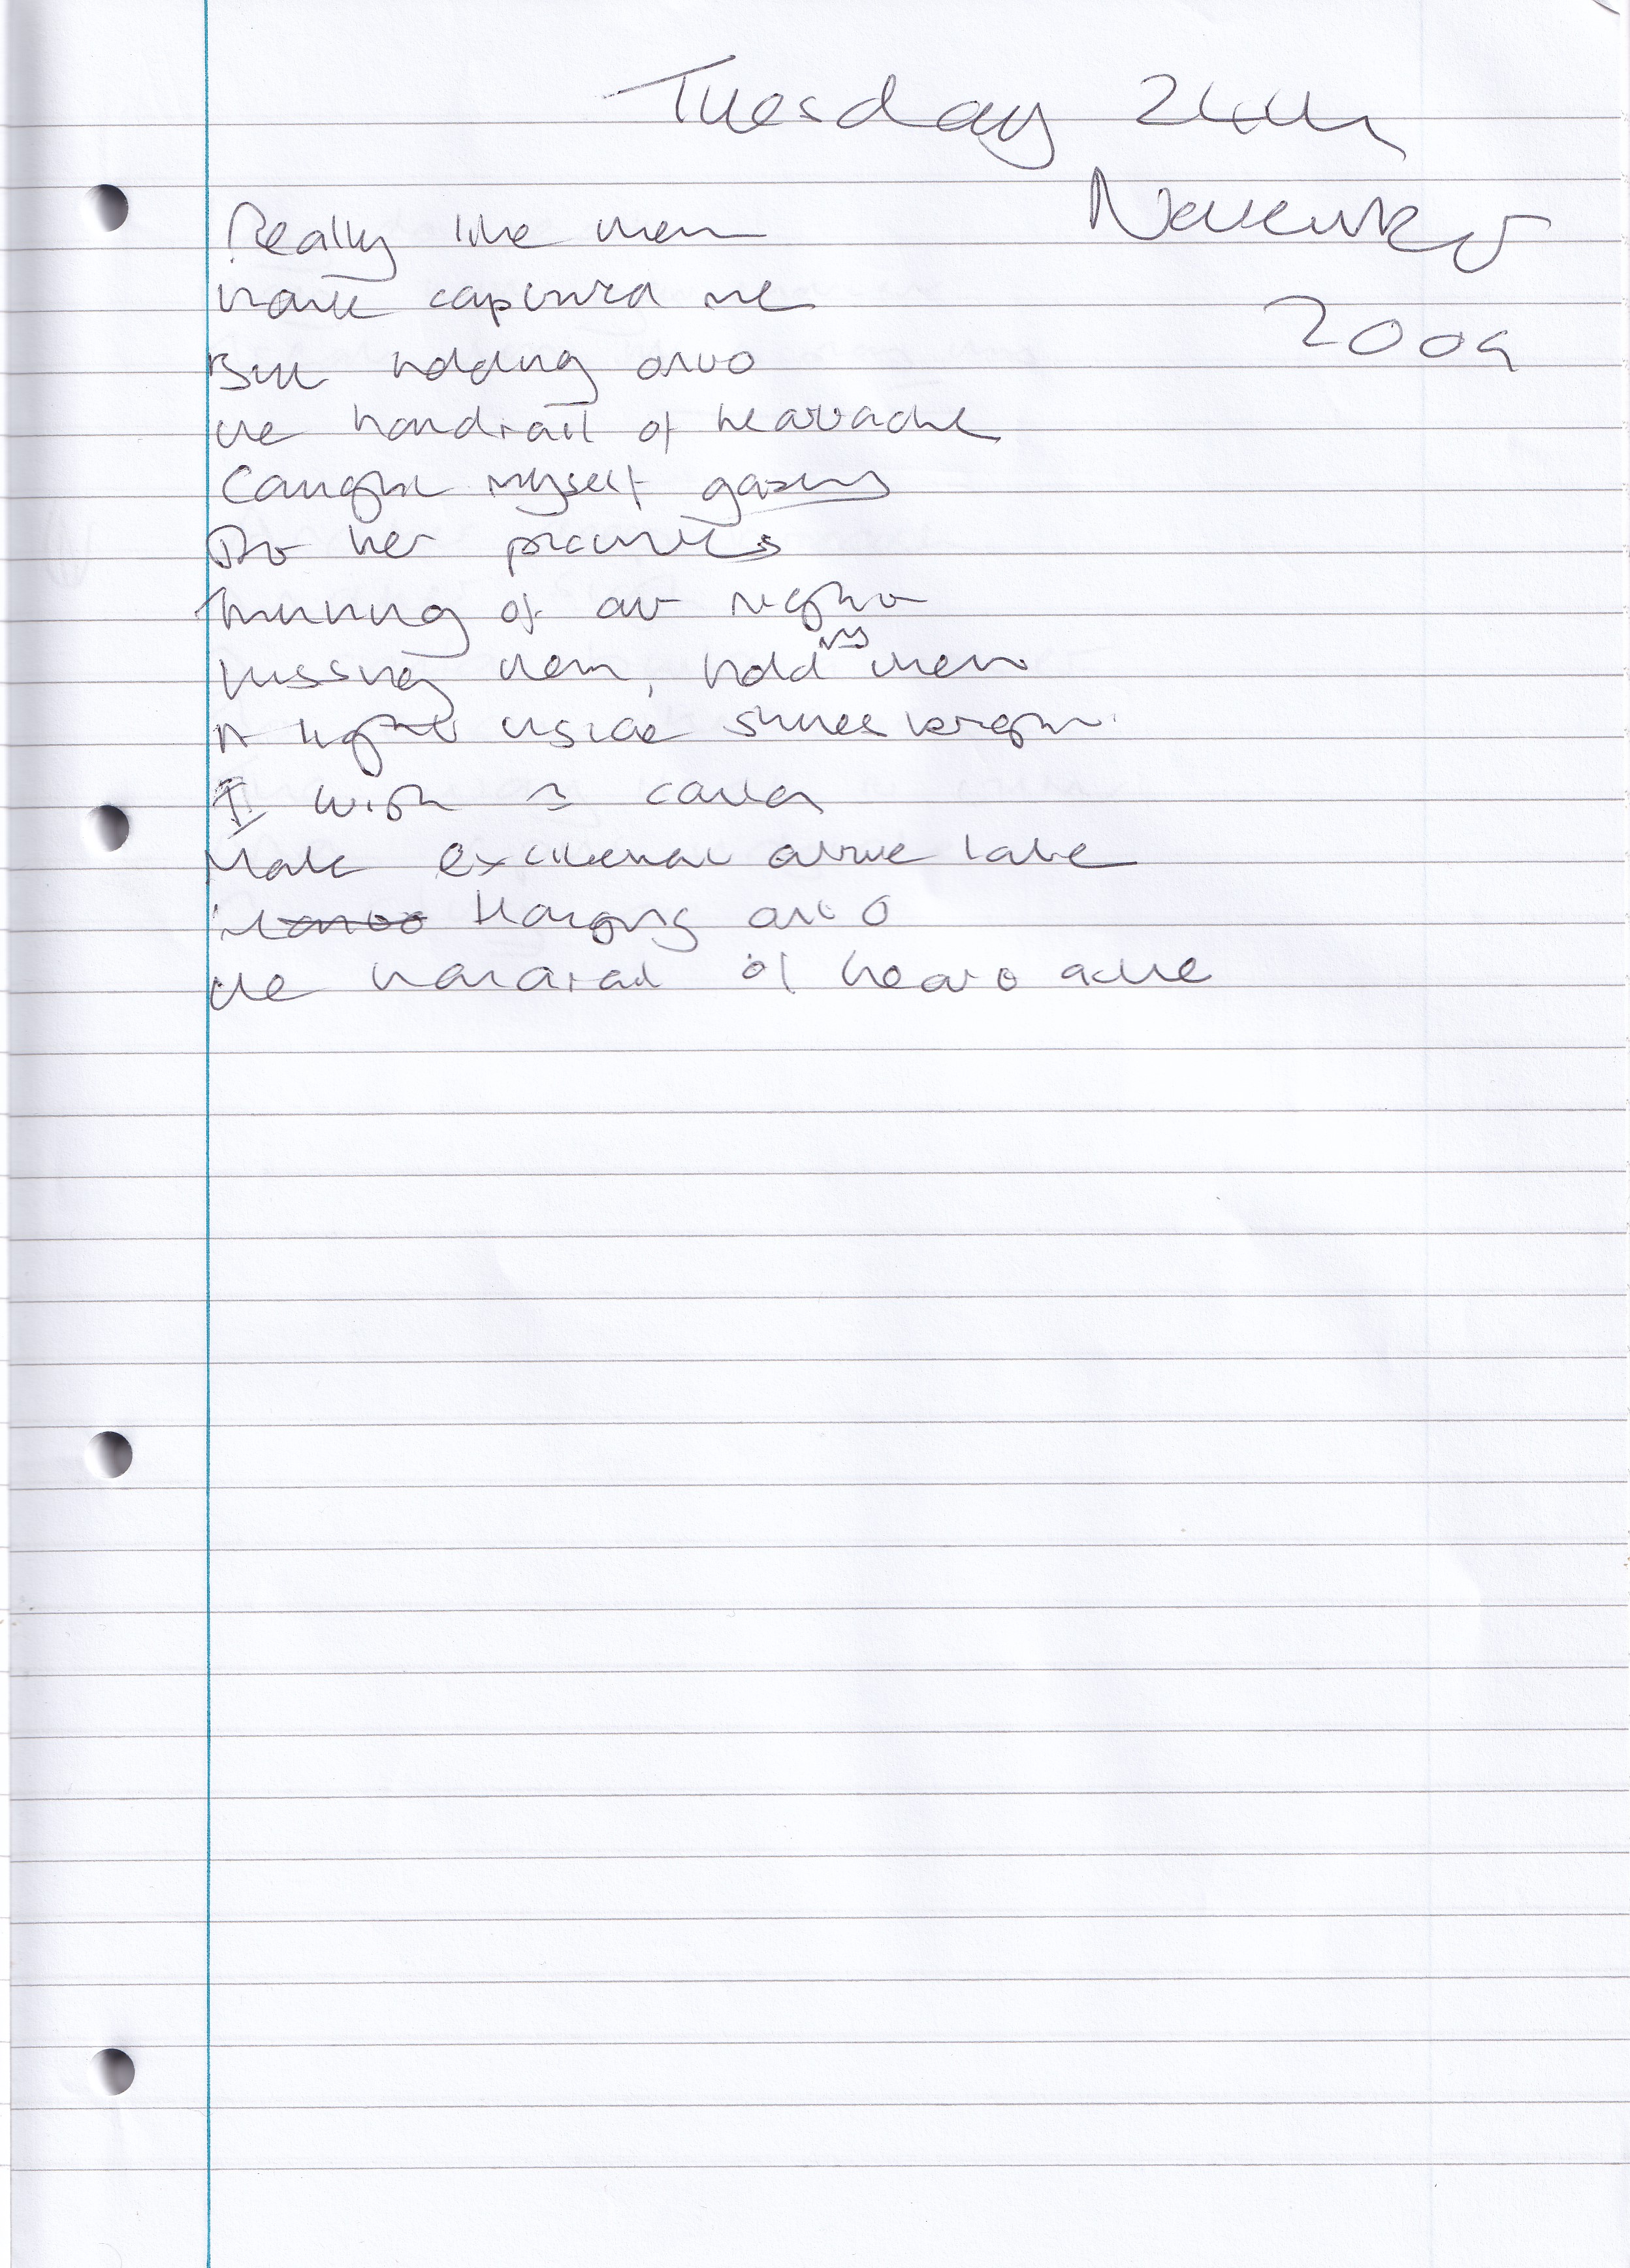 Tuesday 24th
November
2009
Really like them
have captured me
But holding onto
the handrail of heartache
Caught myself gazing
At her pictures
Thinking of our night
Kissing them, holding them
A light inside shines bright.
I wish I could
Make excitement arrive late
Hanging onto
the handrail of heart ache